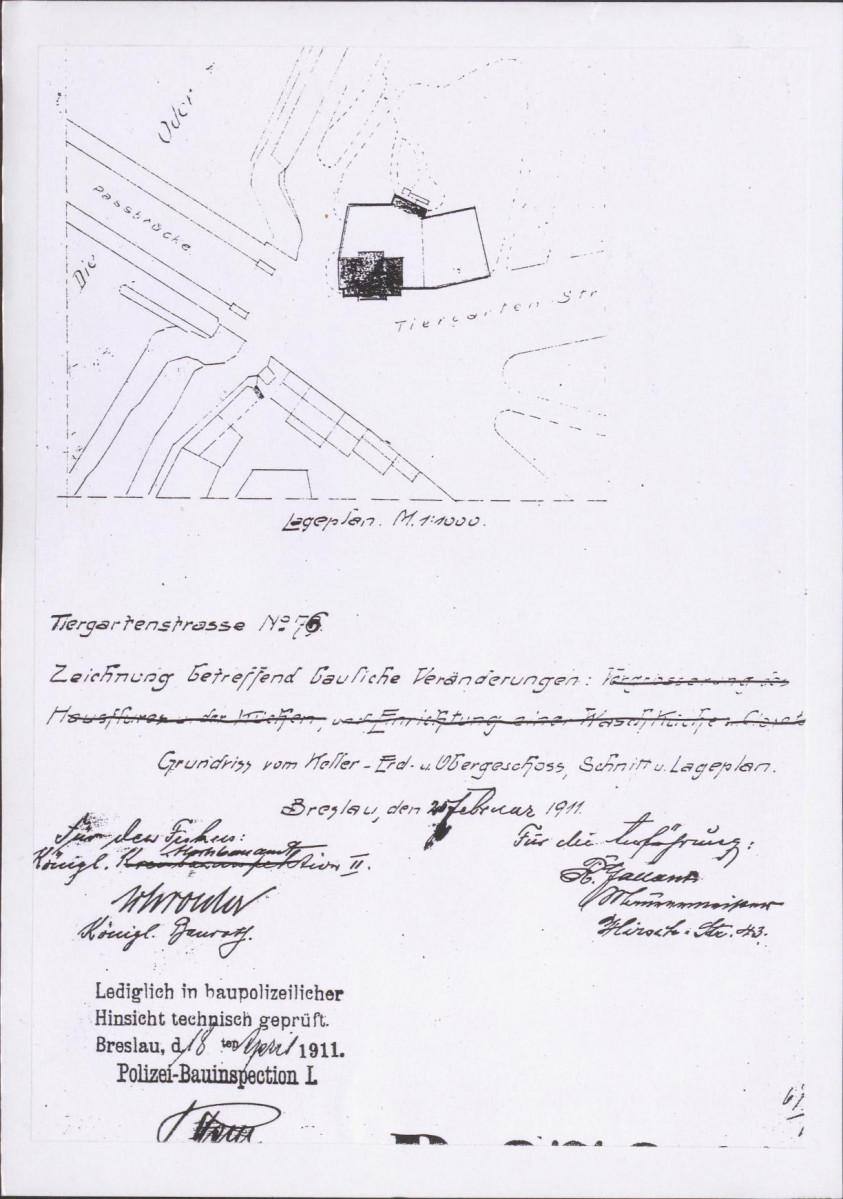 Die Oder
Passbrücke
Tiergarten-Str
Lageplan. M. 1:1000.
Tiergartenstrasse No 76.
Zeichnung betreffend bauliche Veränderungen: Vergrösserung des
Hausflures u. der Küchen, und Einrichtung einer Waschküche u. Closets
Grundriss vom Keller-Erd- u. Obergeschoss, Schnitt u. Lageplan.
Breslau, den 25 Februar 1911.
Für den Fiskus:
Königl. Hochbauamt II.
Königl. Baurat.
Für die Ausführung:
Mauermeister
Hirsch-Str. 43.
Lediglich in baupolizeilicher
Hinsicht technisch geprüft.
Breslau, d. 18 ten April 1911.
Polizei-Bauinspection I.